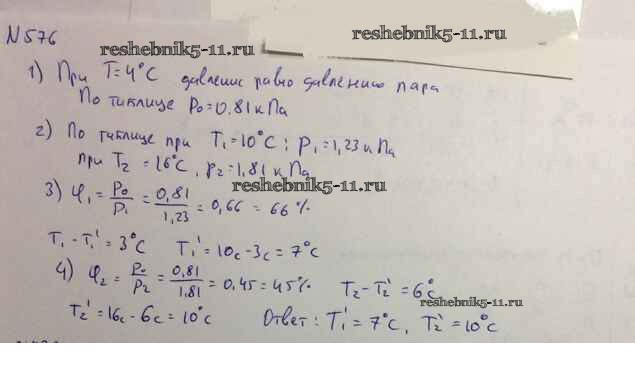 N576
reshebnik5-11.ru
reshebnik5-11.ru
1) При T=4°C давление равно давлению пара
По таблице P₀=0.81кПа
2) По таблице при T₁=10°C; P₁=1,23кПа
при T₂=16°C, P₂=1,81кПа
reshebnik5-11.ru
3) φ₁=P₀/P₁=0,81/1,23=0,66=66%
T₁-T₁'=3°C T₁'=10c-3c=7°c
4) φ₂=P₀/P₂=0,81/1,81=0,45=45% T₂-T₂'=6°c
reshebnik5-11.ru
T₂'=16c-6c=10°c Ответ: T₁'=7°c, T₂'=10°c